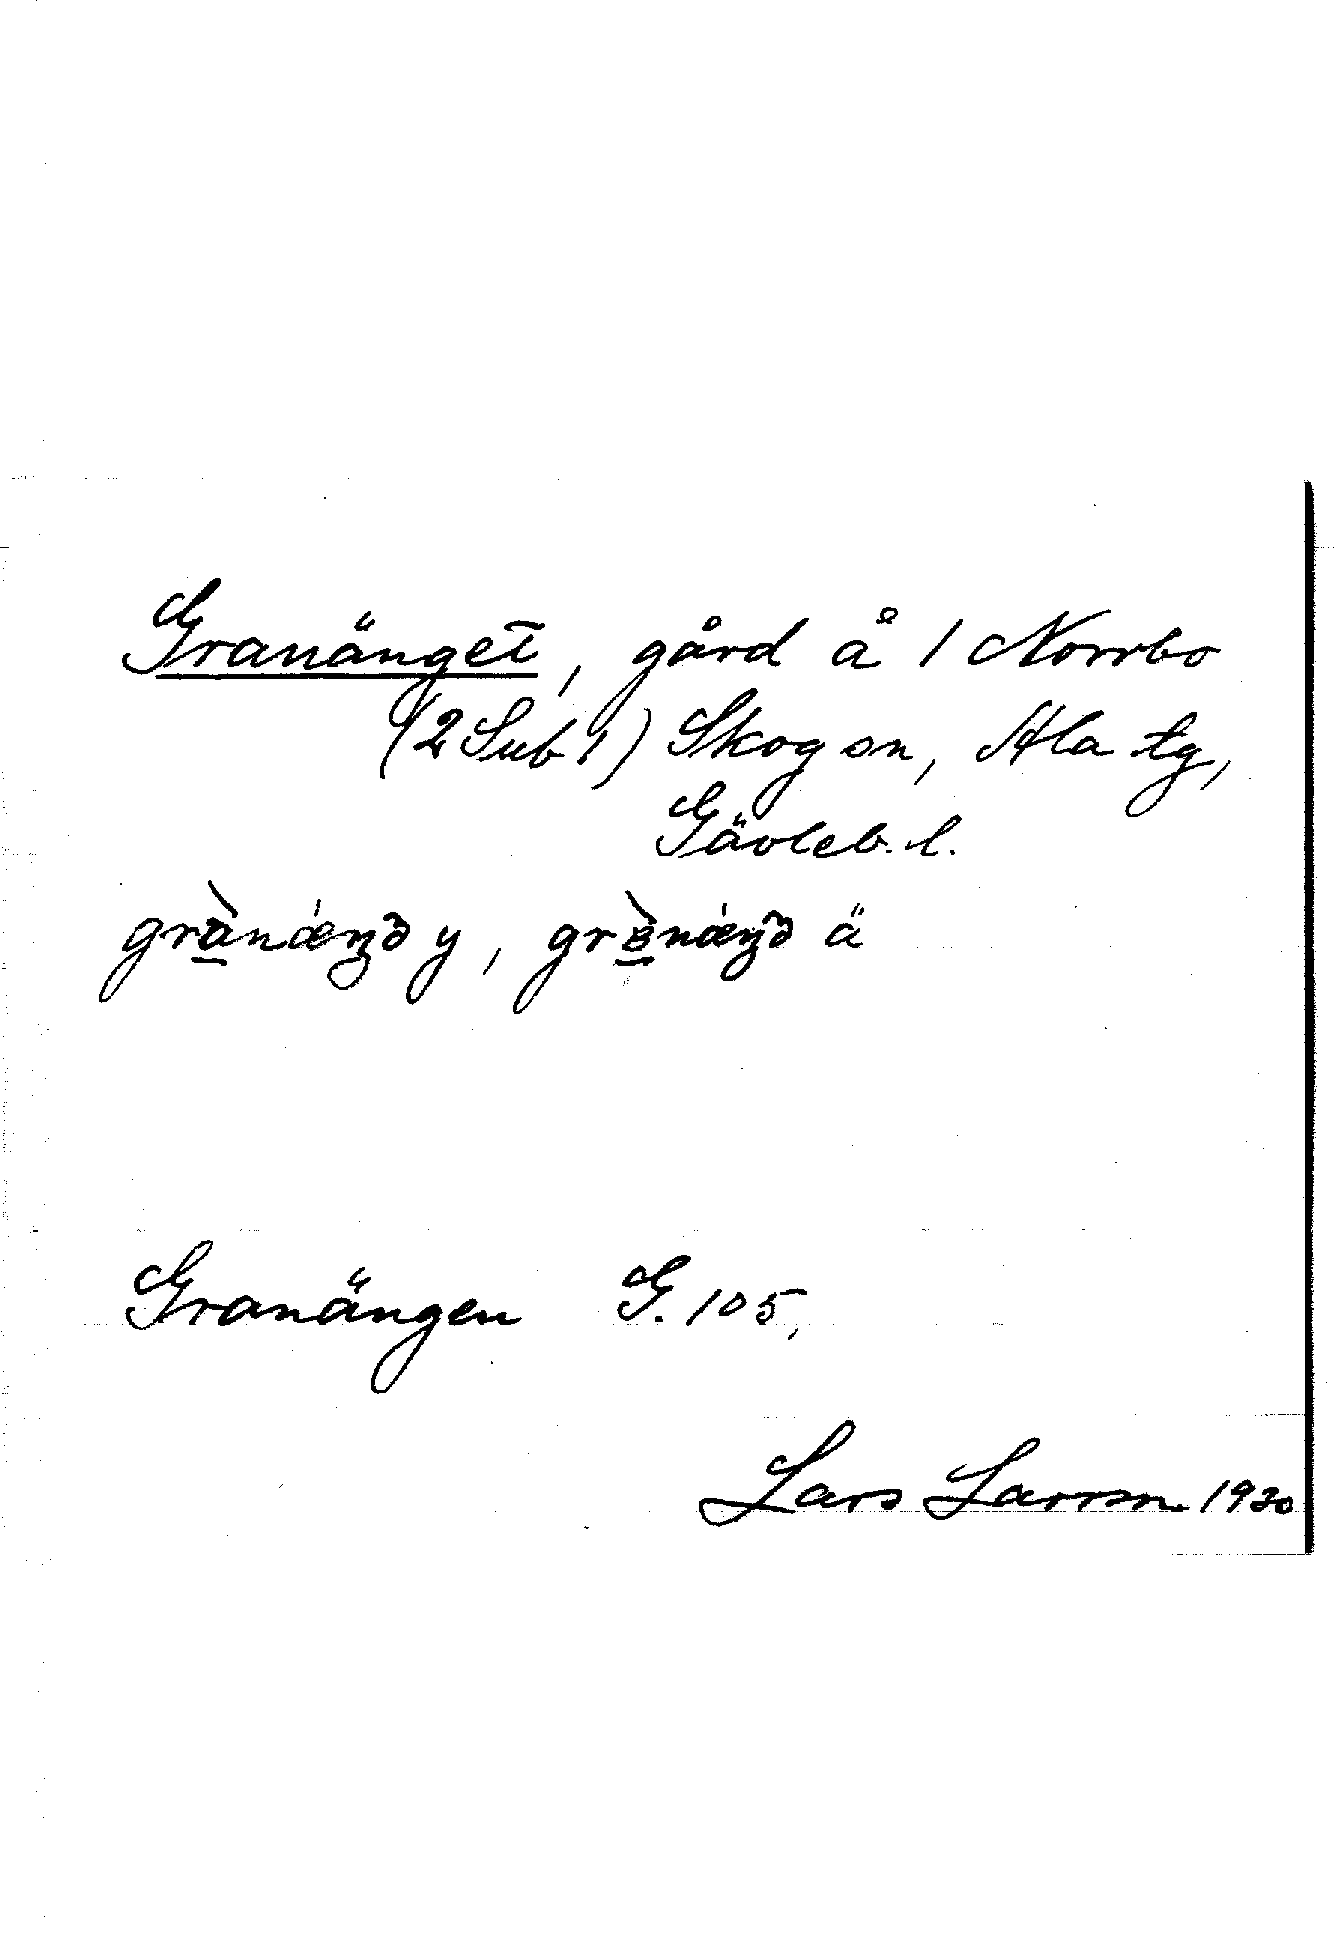 Granänget, gård å 1 Norrbo
(2 Sub 1) Skog sn, Ala tg,
Gävleb. l.
y, ä
Granängen G. 105,
Lars Larsson 1930